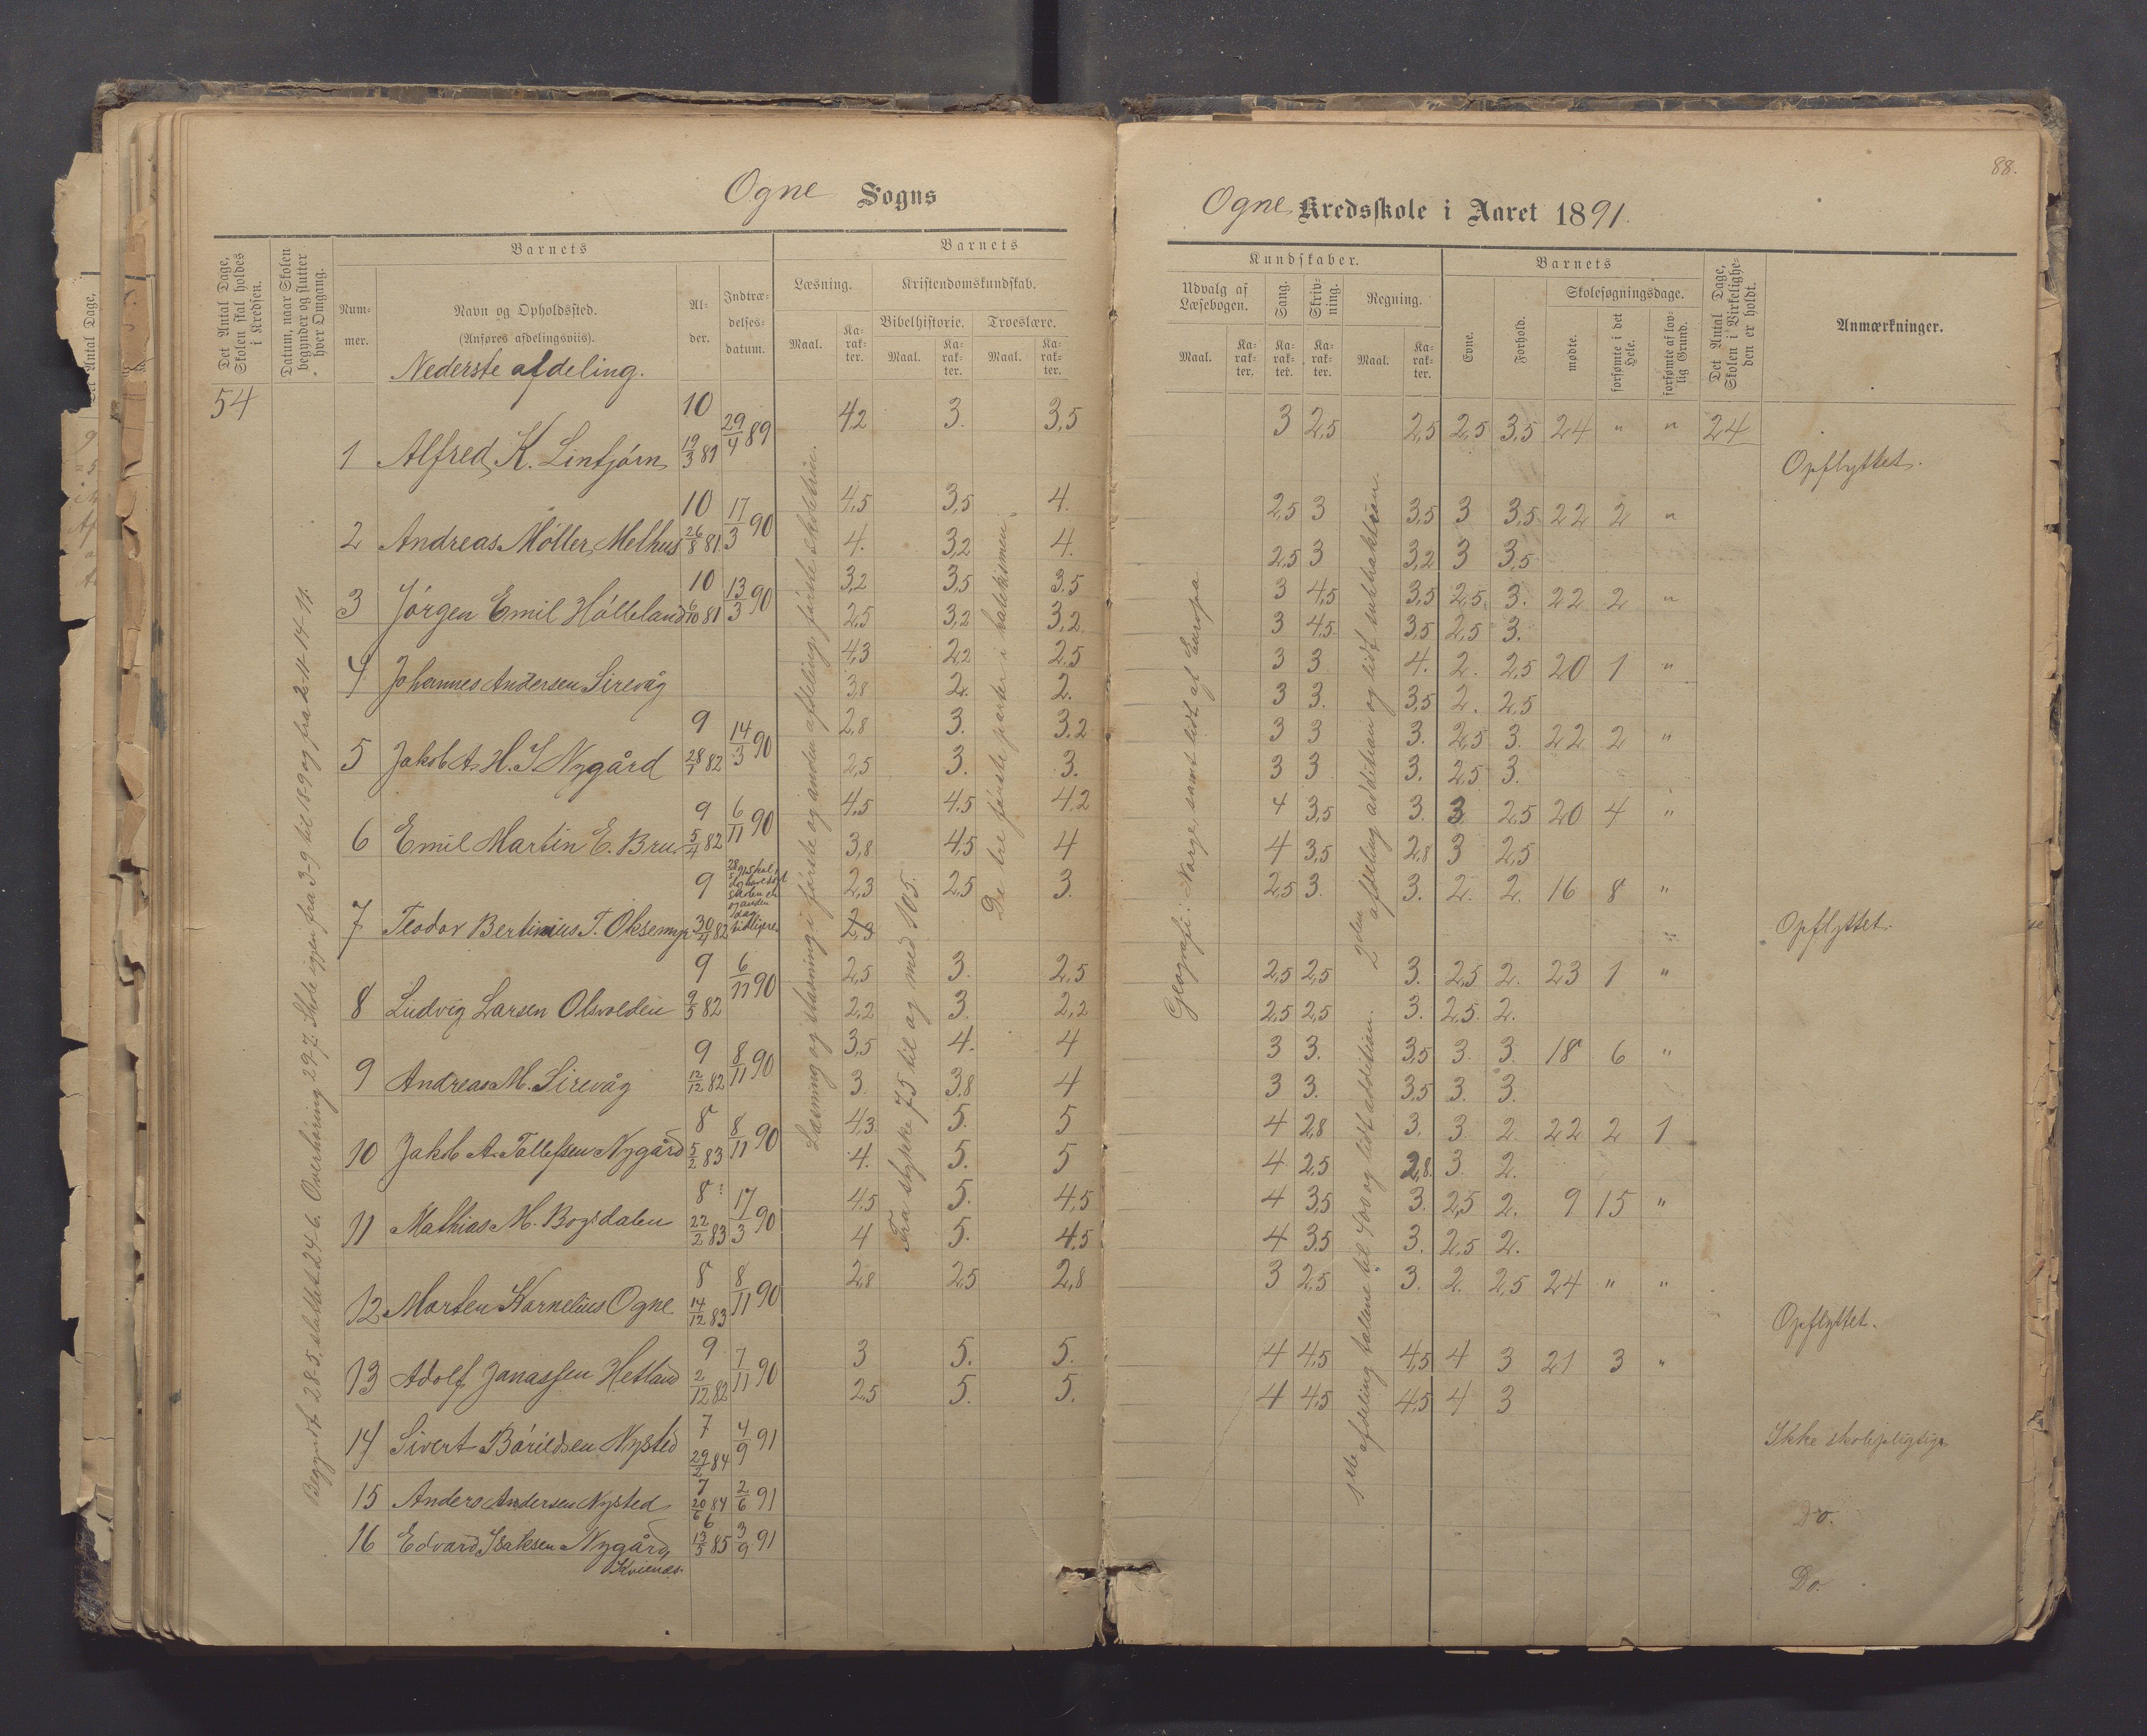 Ogne Sogns
Det Antal Dage, Skolen skal holdes i Kredsen.
Datum, naar Skolen begynder og slutter hver Omgang.
Barnets
Nummer.
Navn og Opholdssted.
(Anføres afdelingsviis).
Alder.
Indtrædelsesdatum.
Barnets
Læsning.
Kristendomskundskab.
Bibelhistorie. Troeslære.
Maal. Karakter. Maal. Karakter. Maal. Karakter.
Nederste afdeling.
54
1 Alfred K. Lintjørn 10 19/3 81 29/4 89 4,2 3. 3,5
2 Andreas Møller Melhus 10 26/8 81 17/3 90 4,5 3,5 4.
4. 3,2 4.
3 Jørgen Emil Hølleland 10 6/10 81 13/3 90 3,2 3,5 3,5
2,5 3,2 3,2
4 Johannes Andersen Sirevåg 4,3 2,2 2,5
3,8 2. 2.
5 Jakob A. H. S. Nygård 9 28/7 82 14/3 90 2,8 3. 3,2
2,5 3. 3.
6 Emil Martin E. Bru 9 5/4 82 6/11 90 4,5 4,5 4,2
3,8 4,5 4
7 Teodor Bertinius T. Oksemyr 9 30/4 82 2,3 2,5 3.
2,3
8 Ludvig Larsen Olsvolden 9 9/5 82 6/11 90 2,5 3. 2,5
2,2 3. 2,2
9 Andreas M. Sirevåg 9 12/12 82 8/11 90 3,5 4. 4
3. 3,8 4
10 Jakob A. Tollefsen Nygård 8 5/2 83 8/11 90 4,3 5. 5
4. 5. 5
11 Mathias M. Bogsdalen 8 22/2 83 17/3 90 4,5 5. 4,5
4 5. 4,5
12 Morten Kornelius Ogne 8 14/12 83 8/11 90 2,8 2,5 2,8
13 Adolf Janassen Hetland 9 2/12 82 7/11 90 3 5. 5.
2,5 5. 5.
14 Sivert Bårildsen Nysted 7 29/2 84 4/9 91
15 Anders Andersen Nysted 7 20/6 84 2/6 91
16 Edvard Isaksen Nygård, 6 13/5 85 3/9 91
Kvienes.
Begyndt 28-5, sluttet 24-6. Overhøring 29-7. Skole igjen fra 3-9 til 18-9 og fra 2-11 14-11.
Læsning og stavning i første og anden afdeling, første skoletrin.
Fra stykke 75 til og med 105.
De tre første parter i katekismen.
88.
Ogne Kredsskole i Aaret 1891.
Kundskaber.
Udvalg af Læsebogen.
Sang.
Skrivning.
Regning.
Maal. Karakter. Karakter. Karakter. Maal. Karakter.
Barnets
Evne.
Forhold.
Skolesøgningsdage.
mødte.
forsømte i det Hele.
forsømte af lovlig Grund.
Det Antal Dage, Skolen i Virkeligheden er holdt.
Anmærkninger.
3 2,5 2,5 2,5 3,5 24 " " 24
Opflyttet.
2,5 3 3,5 3 3,5 22 2 "
2,5 3 3,2 3 3,5
3 4,5 3,5 2,5 3. 22 2 "
3 4,5 3,5 2,5 3.
3 3 4. 2. 2,5 20 1 "
3 3. 3,5 2. 2,5
3 3 3. 2,5 3. 22 2 "
3 3 3. 2,5 3.
4 3,5 3. 3 2,5 20 4 "
4 3,5 2,8 3 2,5
2,5 3. 3. 2. 2. 16 8 "
Opflyttet.
2,5 2,5 3. 2,5 2. 23 1 "
2,5 2,5 3. 2,5 2.
3 3. 3,5 3. 3. 18 6 "
3 3. 3,5 3. 3.
4 2,8 3. 3. 2. 22 2 1
4 2,5 2,8 3. 2.
4 3,5 3. 2,5 2. 9 15 "
4 3,5 3. 2,5 2.
3 2,5 3. 2. 2,5 24 " "
Opflyttet.
4 4,5 4,5 4 3 21 3 "
4 4,5 4,5 4 3
Ikke skolepligtige
Do.
Do.
Geografi: Norge, samt lidt af Europa.
2den afdeling addition og lidt subtraktion.
1ste afdeling tallene til 400 og lidt addition.